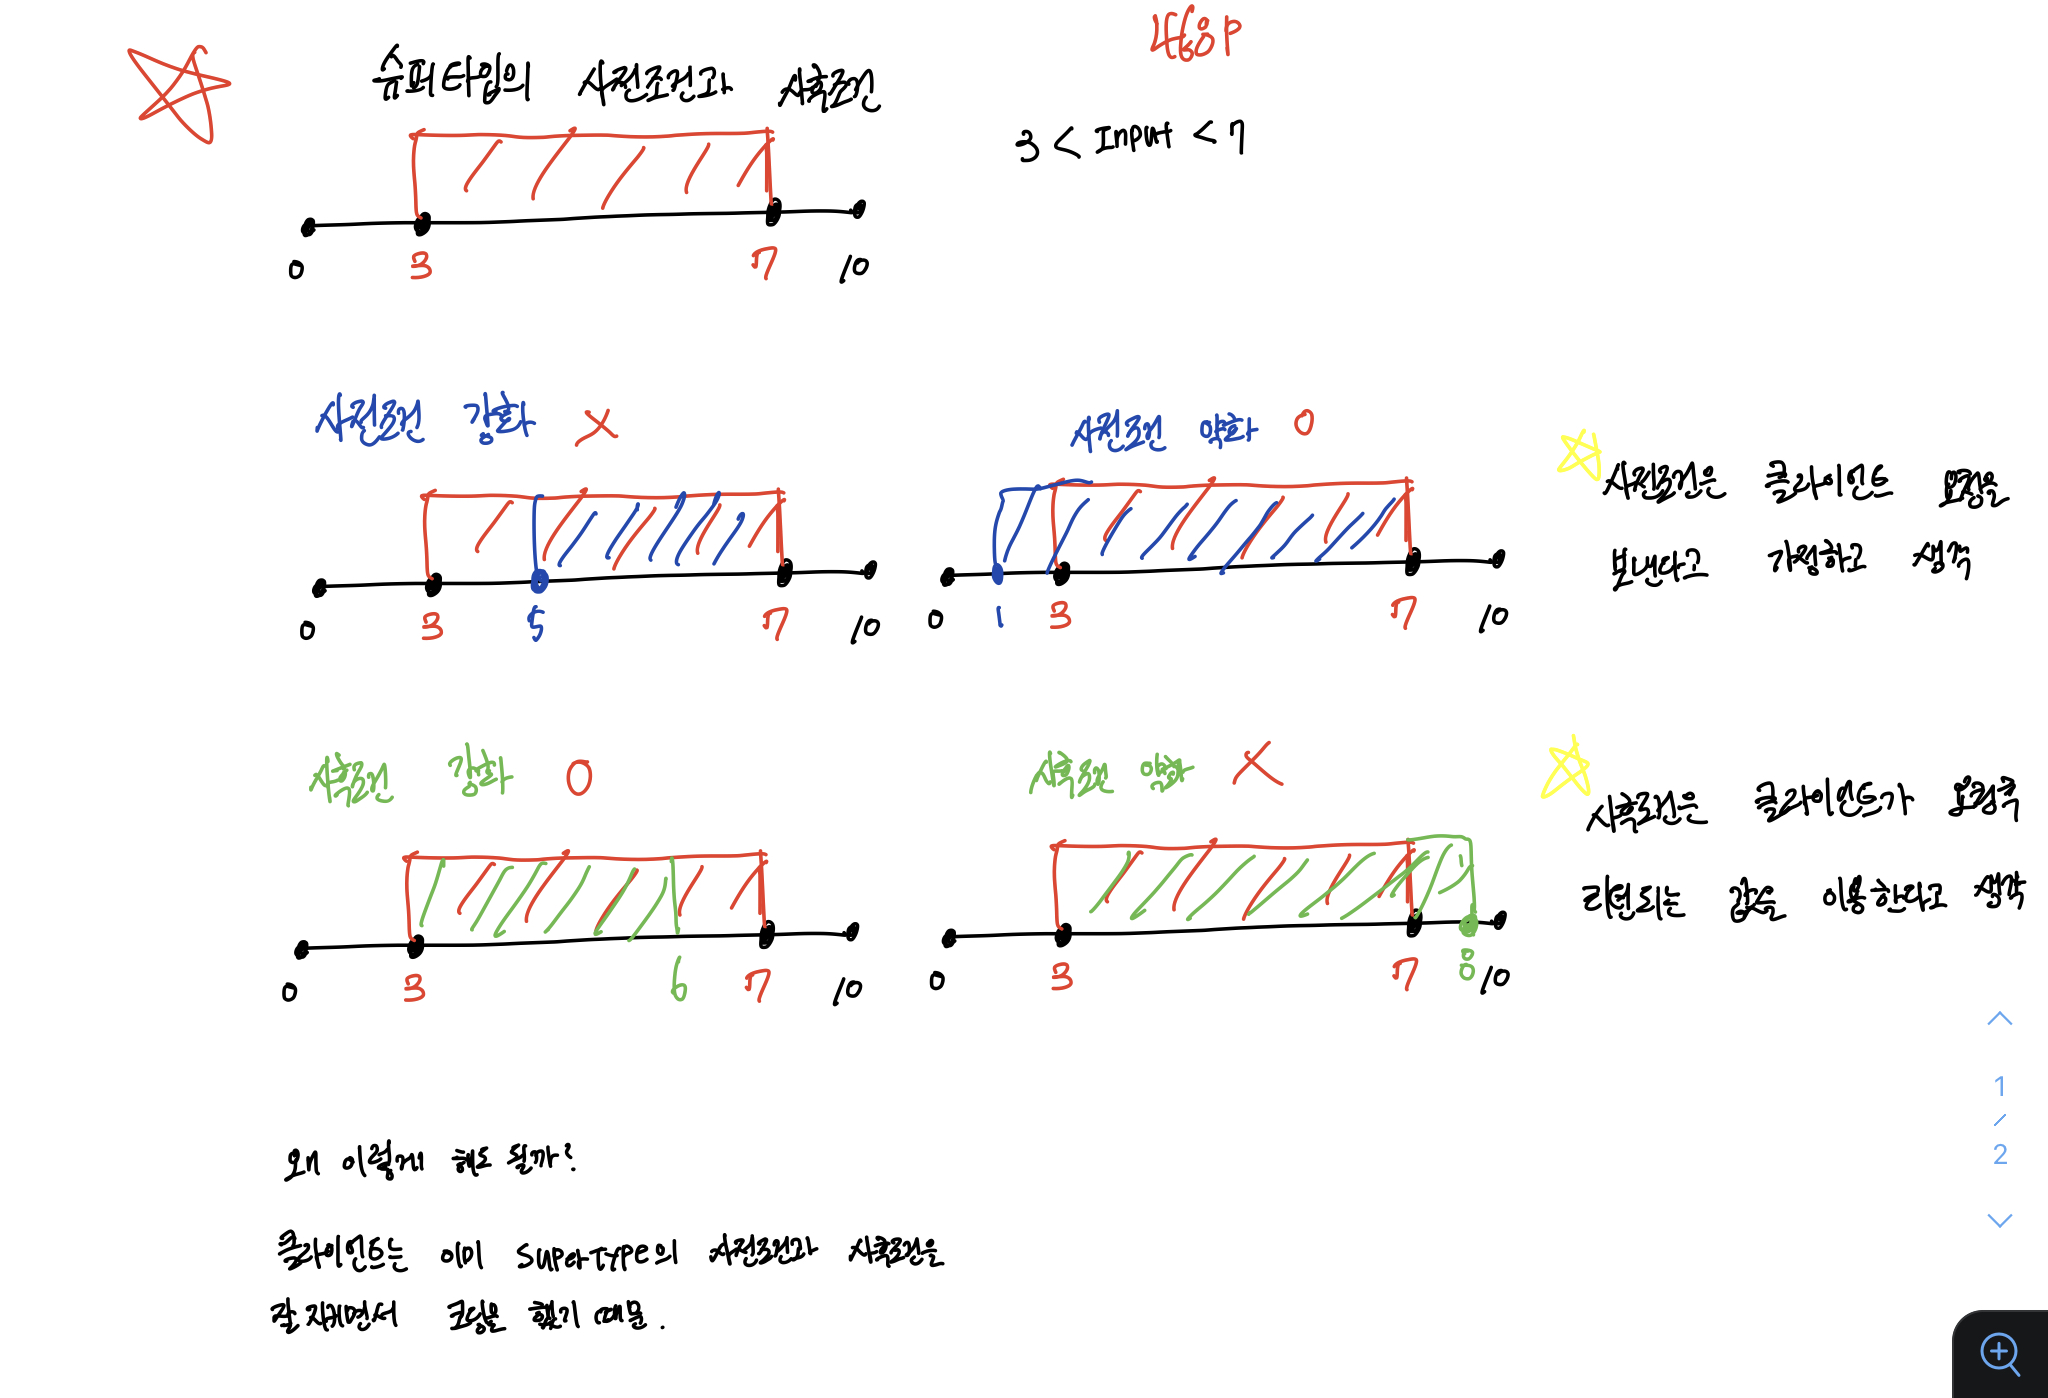 468p
슈퍼타입의 사전조건과 사후조건
3 < Input < 7
0 3 7 10
사전조건 강화 X
사전조건 약화 O
0 3 5 7 10
0 1 3 7 10
사전조건은 클라이언트 요청을
보낸다고 가정하고 생각
사후조건 강화 O
사후조건 약화 X
0 3 6 7 10
0 3 7 8 10
사후조건은 클라이언트가 요청후
리턴되는 값을 이용한다고 생각
왜 이렇게 해도 될까?
클라이언트는 이미 supertype의 사전조건과 사후조건을
잘 지키면서 코딩을 했기 때문.
1
/
2